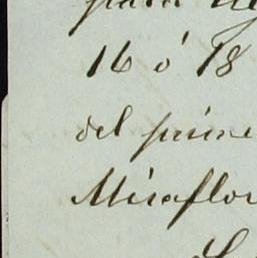 para
16 ó 18
del prime
Miraflor